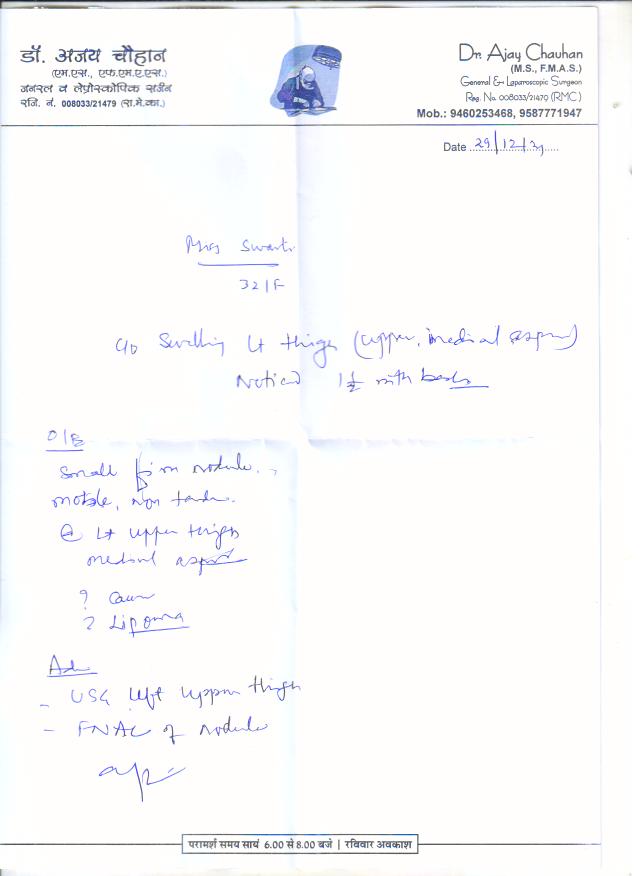 डॉ. अजय चौहान
(एम.एस., एफ.एम.ए.एस.)
जनरल व लेप्रोस्कोपिक सर्जन
रजि. नं. 008033/21479 (रा.मे.का.)
Dr. Ajay Chauhan
(M.S., F.M.A.S.)
General & Laparoscopic Surgeon
Reg. No. 008033/21479 (RMC)
Mob.: 9460253468, 9587771947
Date 29/12/21
Mrs Swati
32/F
c/o Swelling Lt thigh (upper, medial aspect)
Noticed 1½ mth back
O/E
Small firm nodule,
mobile, non tender.
@ Lt upper thigh
medial aspect
? Cause
? Lipoma
Adv
- USG left upper thigh
- FNAC of nodule
परामर्श समय सायं 6.00 से 8.00 बजे | रविवार अवकाश